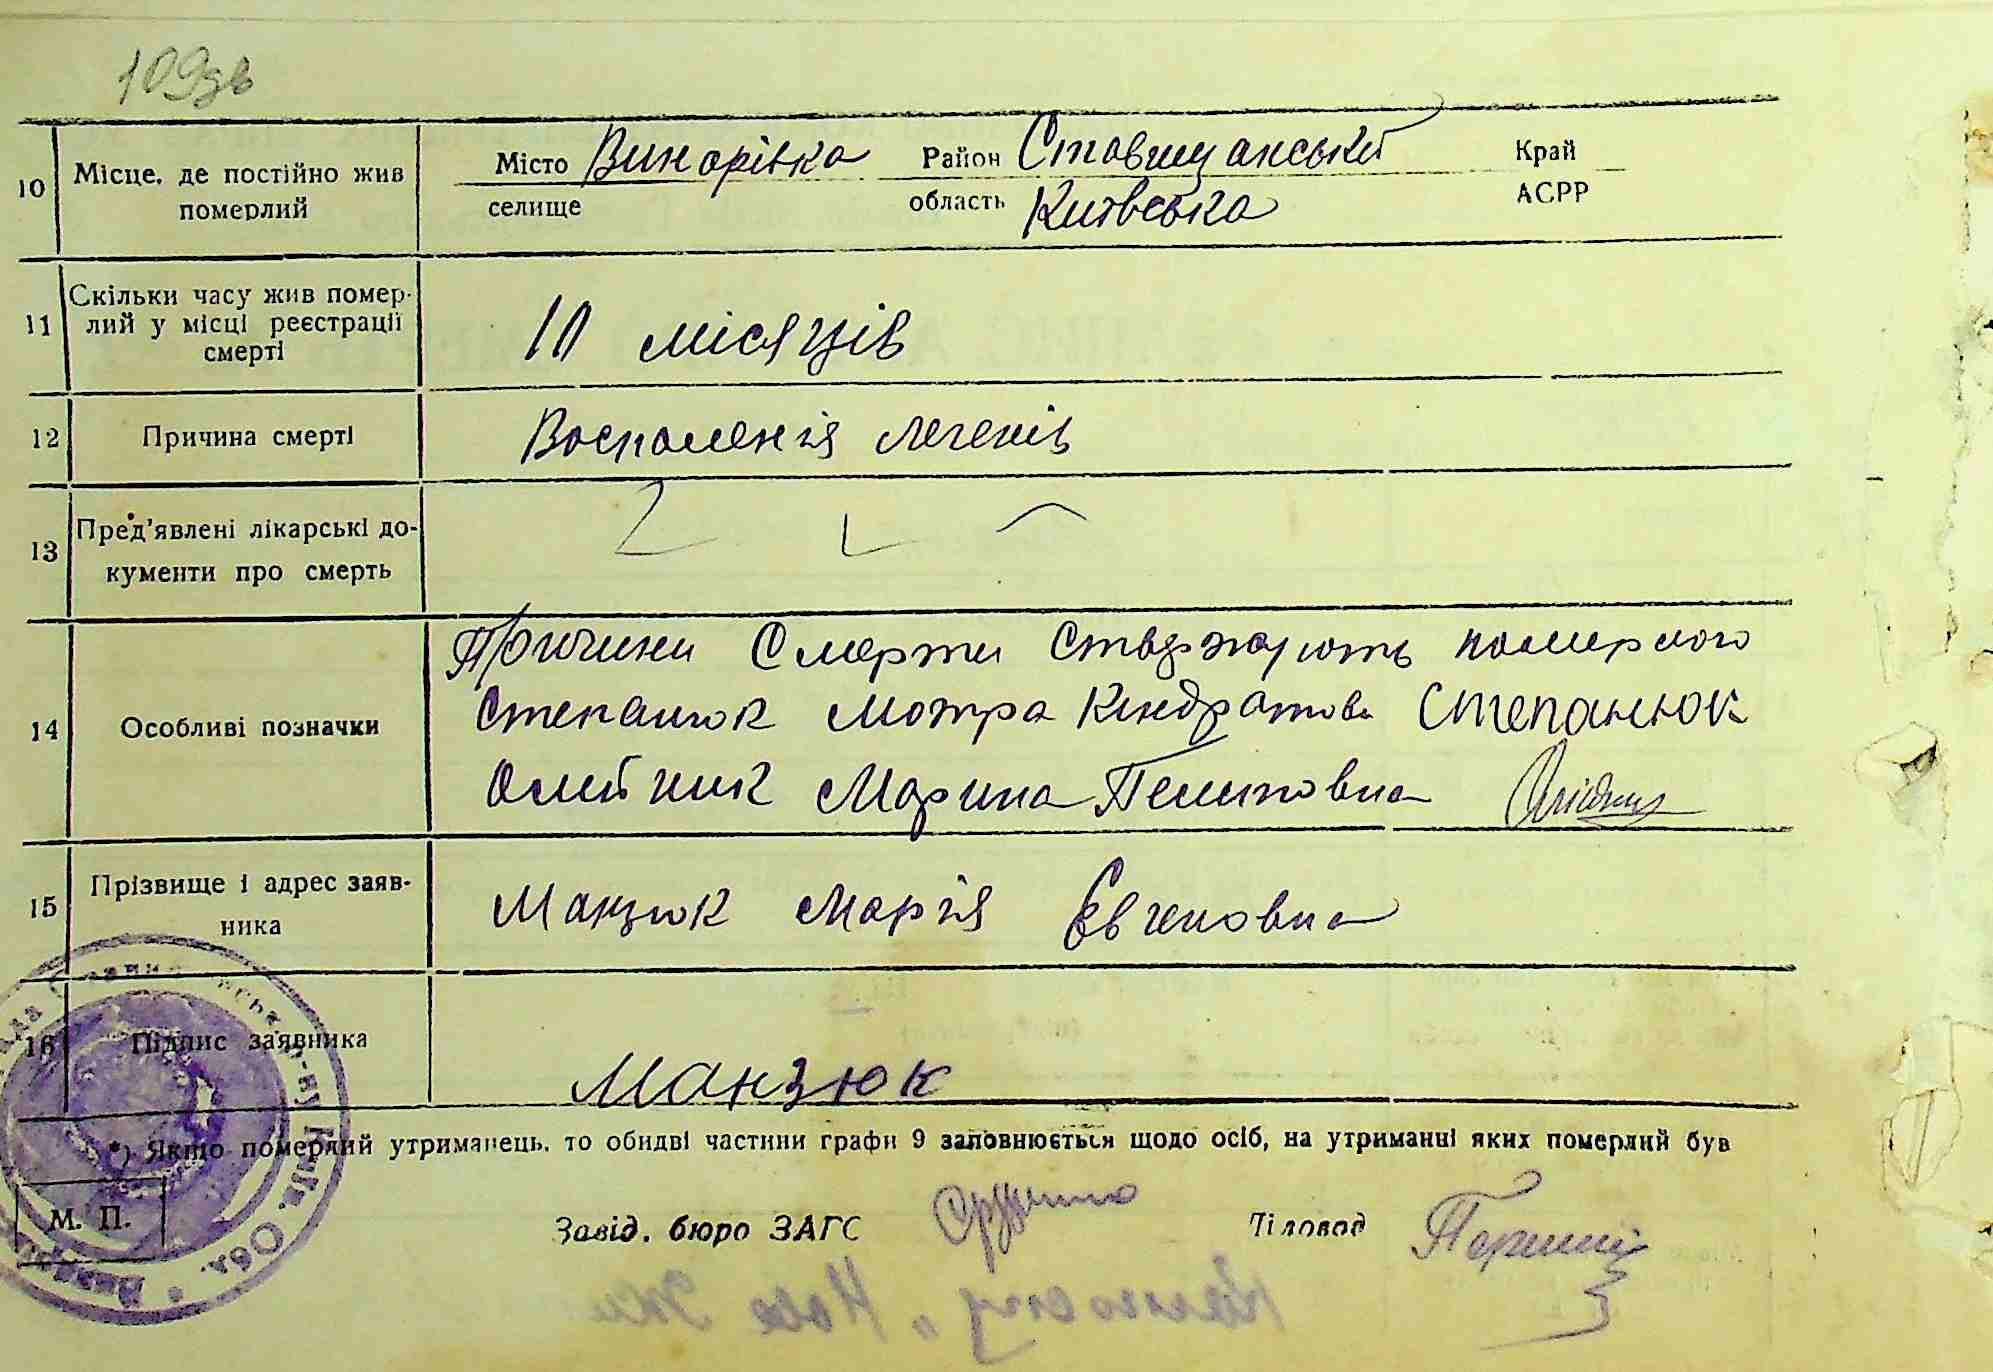 109зв
10 Місце, де постійно жив померлий Місто селище Винарівка Район Ставищанський область Київська Край АСРР
11 Скільки часу жив помер-
лий у місці реєстрації
смерті
10 місяців
12 Причина смерті Воспаленія легенів
13 Пред'явлені лікарські до-
кументи про смерть
Причини Смерти Ствержують померлого
14 Особливі позначки Степанюк Мотра Кіндратовн Степанюк
Олейник Марина Пелиповна
15 Прізвище і адрес заяв-
ника
Манзюк Марія Євгеновна
16 Підпис заявника
Манзюк
*) Якщо померлий утриманець, то обидві частини графи 9 заповнюється щодо осіб, на утриманні яких померлий був
М. П.
Завід. бюро ЗАГС Діловод